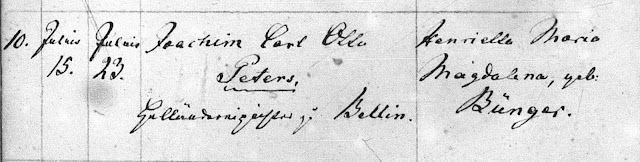 10. Junius Junius Joachim Carl Otto Henriette Maria
15. 23. Peters, Magdalena, geb:
Holländereipächter zu Bellin. Bünger.